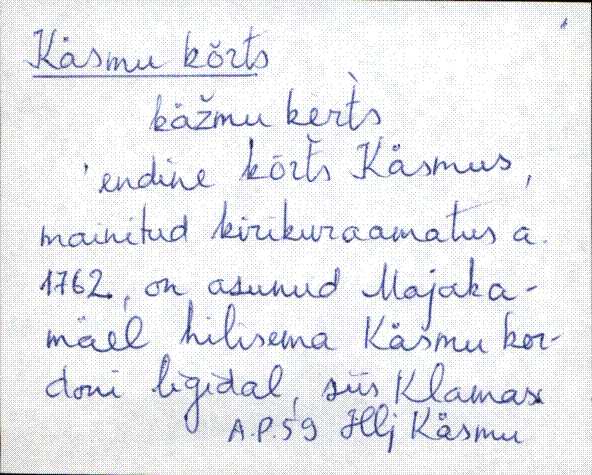 Käsmu kõrts
käžmu kèrt̀s
'endine kõrts Käsmus,
mainitud kirikuraamatus a.
1762, on asunud Majaka-
mäel hilisema Käsmu kor-
doni ligidal, siis Klamas
A.P.59 Hlj Käsmu